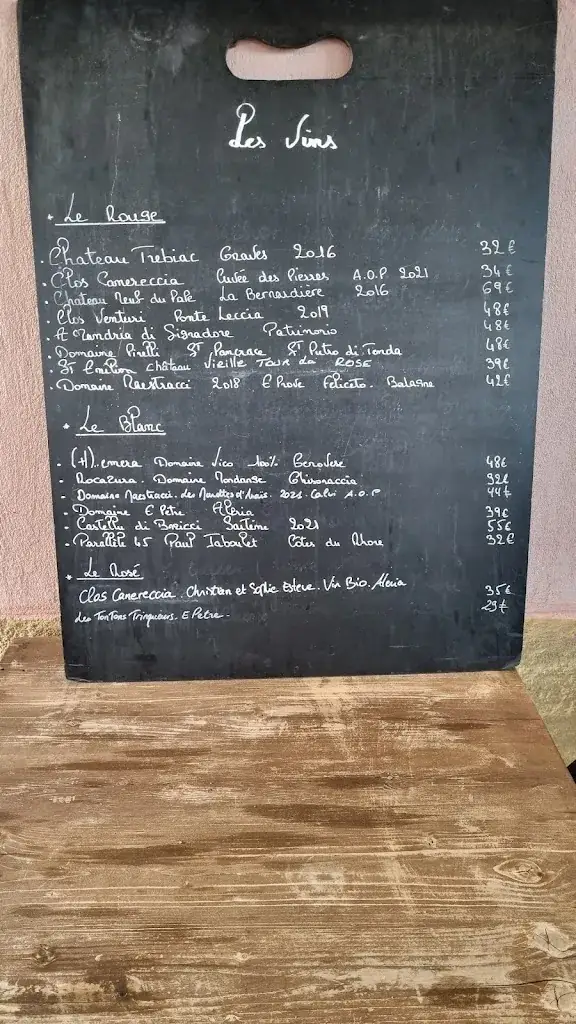 Les Vins
* Le Rouge
. Chateau Trebiac Graves 2016 32€
. Clos Canereccia Cuvée des Pierres A.O.P 2021 34€
. Chateau Neuf du Pape La Bernardière 2016 69€
. Clos Venturi Ponte Leccia 2019 48€
. A Mandria di Signadore Patrimonio 48€
. Domaine Pinelli St Pancrace St Pietro di Tenda 48€
. St Emilion château Vieille TOUR La ROSE 39€
. Domaine Maestracci 2018 E Prove Feliceto. Balagne 42€
* Le Blanc
- Domaine Vico 100% Genovese 48€
- Domaine 32€
- Domaine Maestracci. 2021. Calvi A.O.P 44€
- Domaine E Petre Aleria 39€
- Castellu di Baricci Sartène 2021 55€
- Parallèle 45 Paul Jaboulet Côtes du Rhone 32€
* Le Rosé
Clos Canereccia. Christian et Sophie Esteve. Vin Bio. Aleria 35€
Les TonTons Trinqueurs. E Petre. 29€